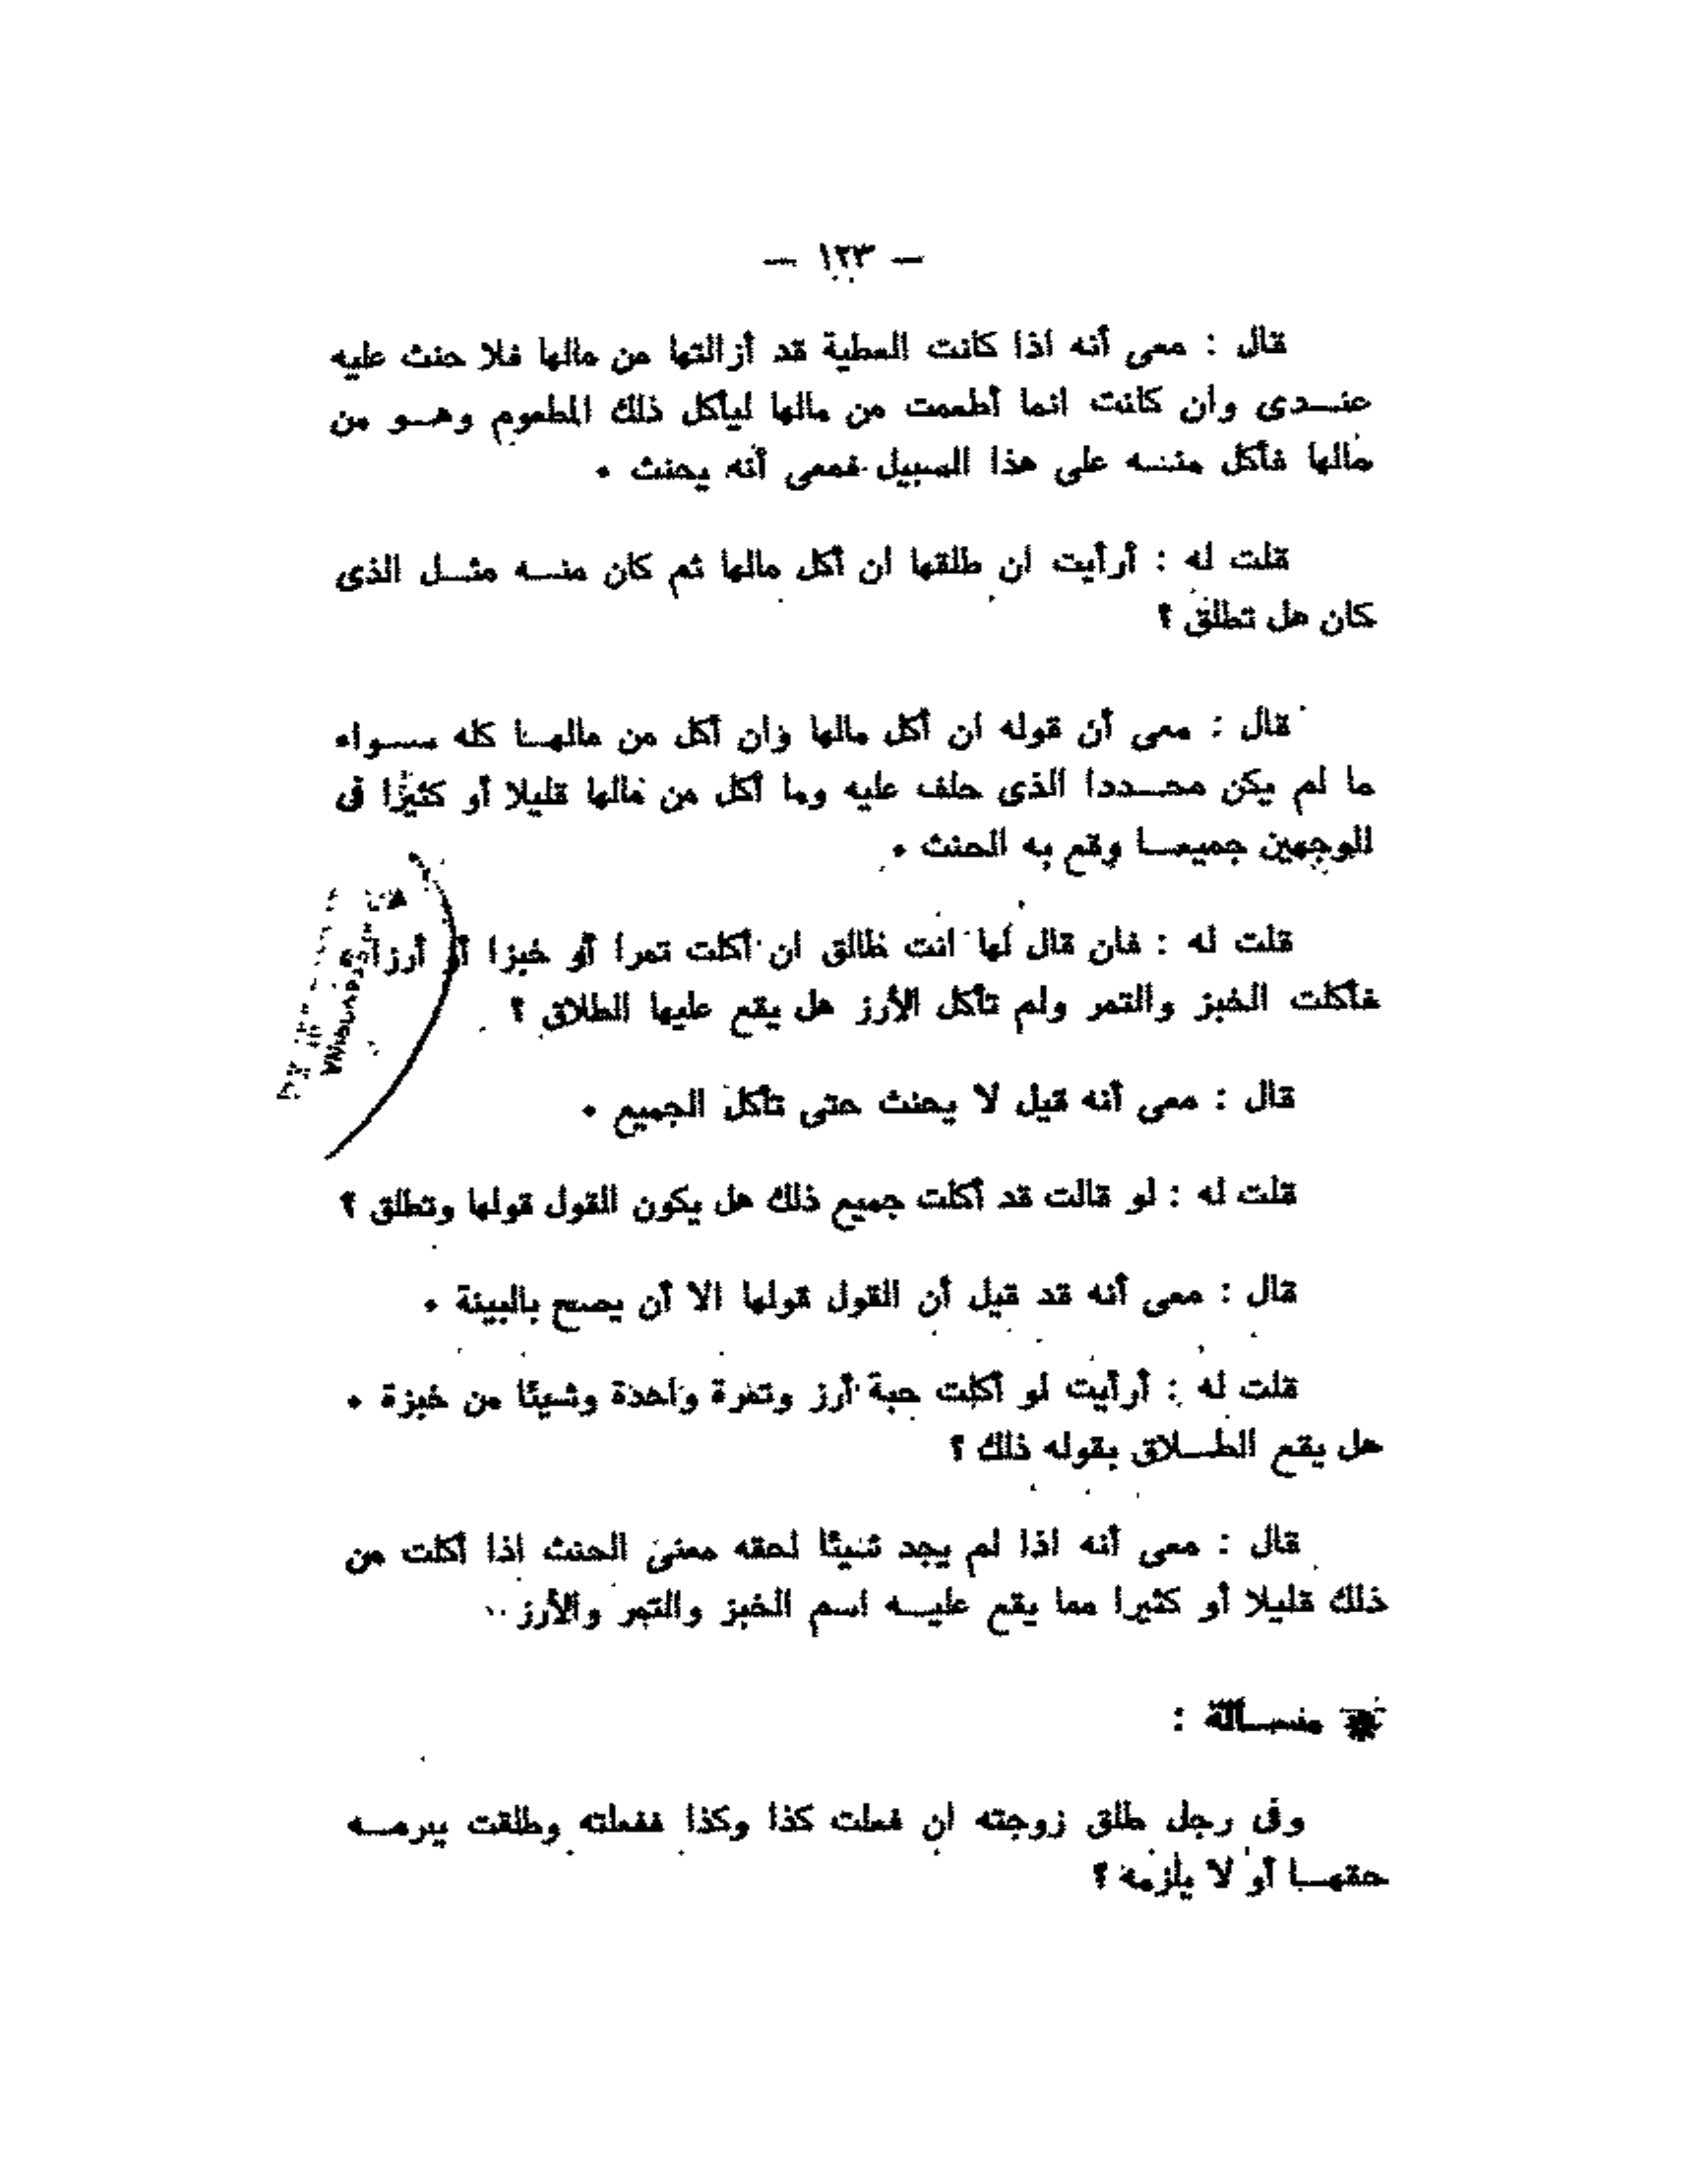 — ١٢٣ —
قال : معى أنه اذا كانت العطية قد أزالتها من مالها فلا حنث عليه
عنـــدى وان كانت انما أطعمت من مالها ليأكل ذلك المطعوم وهـــو من
مالها فأكل منـــه على هذا السبيل فمعى أنه يحنث .
قلت له : أرأيت ان طلقها ان أكل مالها ثم كان منـــه مثـــل الذى
كان هل تطلق ؟
قال : معى أن قوله ان أكل مالها وان أكل من مالهـــا كله ســـواء
ما لم يكن محـــددا الذى حلف عليه وما أكل من مالها قليلا أو كثيرا فى
الوجهين جميعـــا وقع به الحنث .
قلت له : فان قال لها انت طالق ان أكلت تمرا أو خبزا أو أرزا
فأكلت الخبز والتمر ولم تأكل الأرز هل يقع عليها الطلاق ؟
قال : معى أنه قيل لا يحنث حتى تأكل الجميع .
قلت له : لو قالت قد أكلت جميع ذلك هل يكون القول قولها وتطلق ؟
قال : معى أنه قد قيل أن القول قولها الا أن يصح بالبينة .
قلت له : أرأيت لو أكلت حبة أرز وتمرة واحدة وشيئا من خبزة .
هل يقع الطـــلاق بقوله ذلك ؟
قال : معى أنه اذا لم يجد شيئا لحقه معنى الحنث اذا أكلت من
ذلك قليلا أو كثيرا مما يقع عليـــه اسم الخبز والتمر والأرز .
* مســـألة :
وفى رجل طلق زوجته ان فعلت كذا وكذا ففعلته وطلقت
حقهـــا أو لا يلزمه ؟